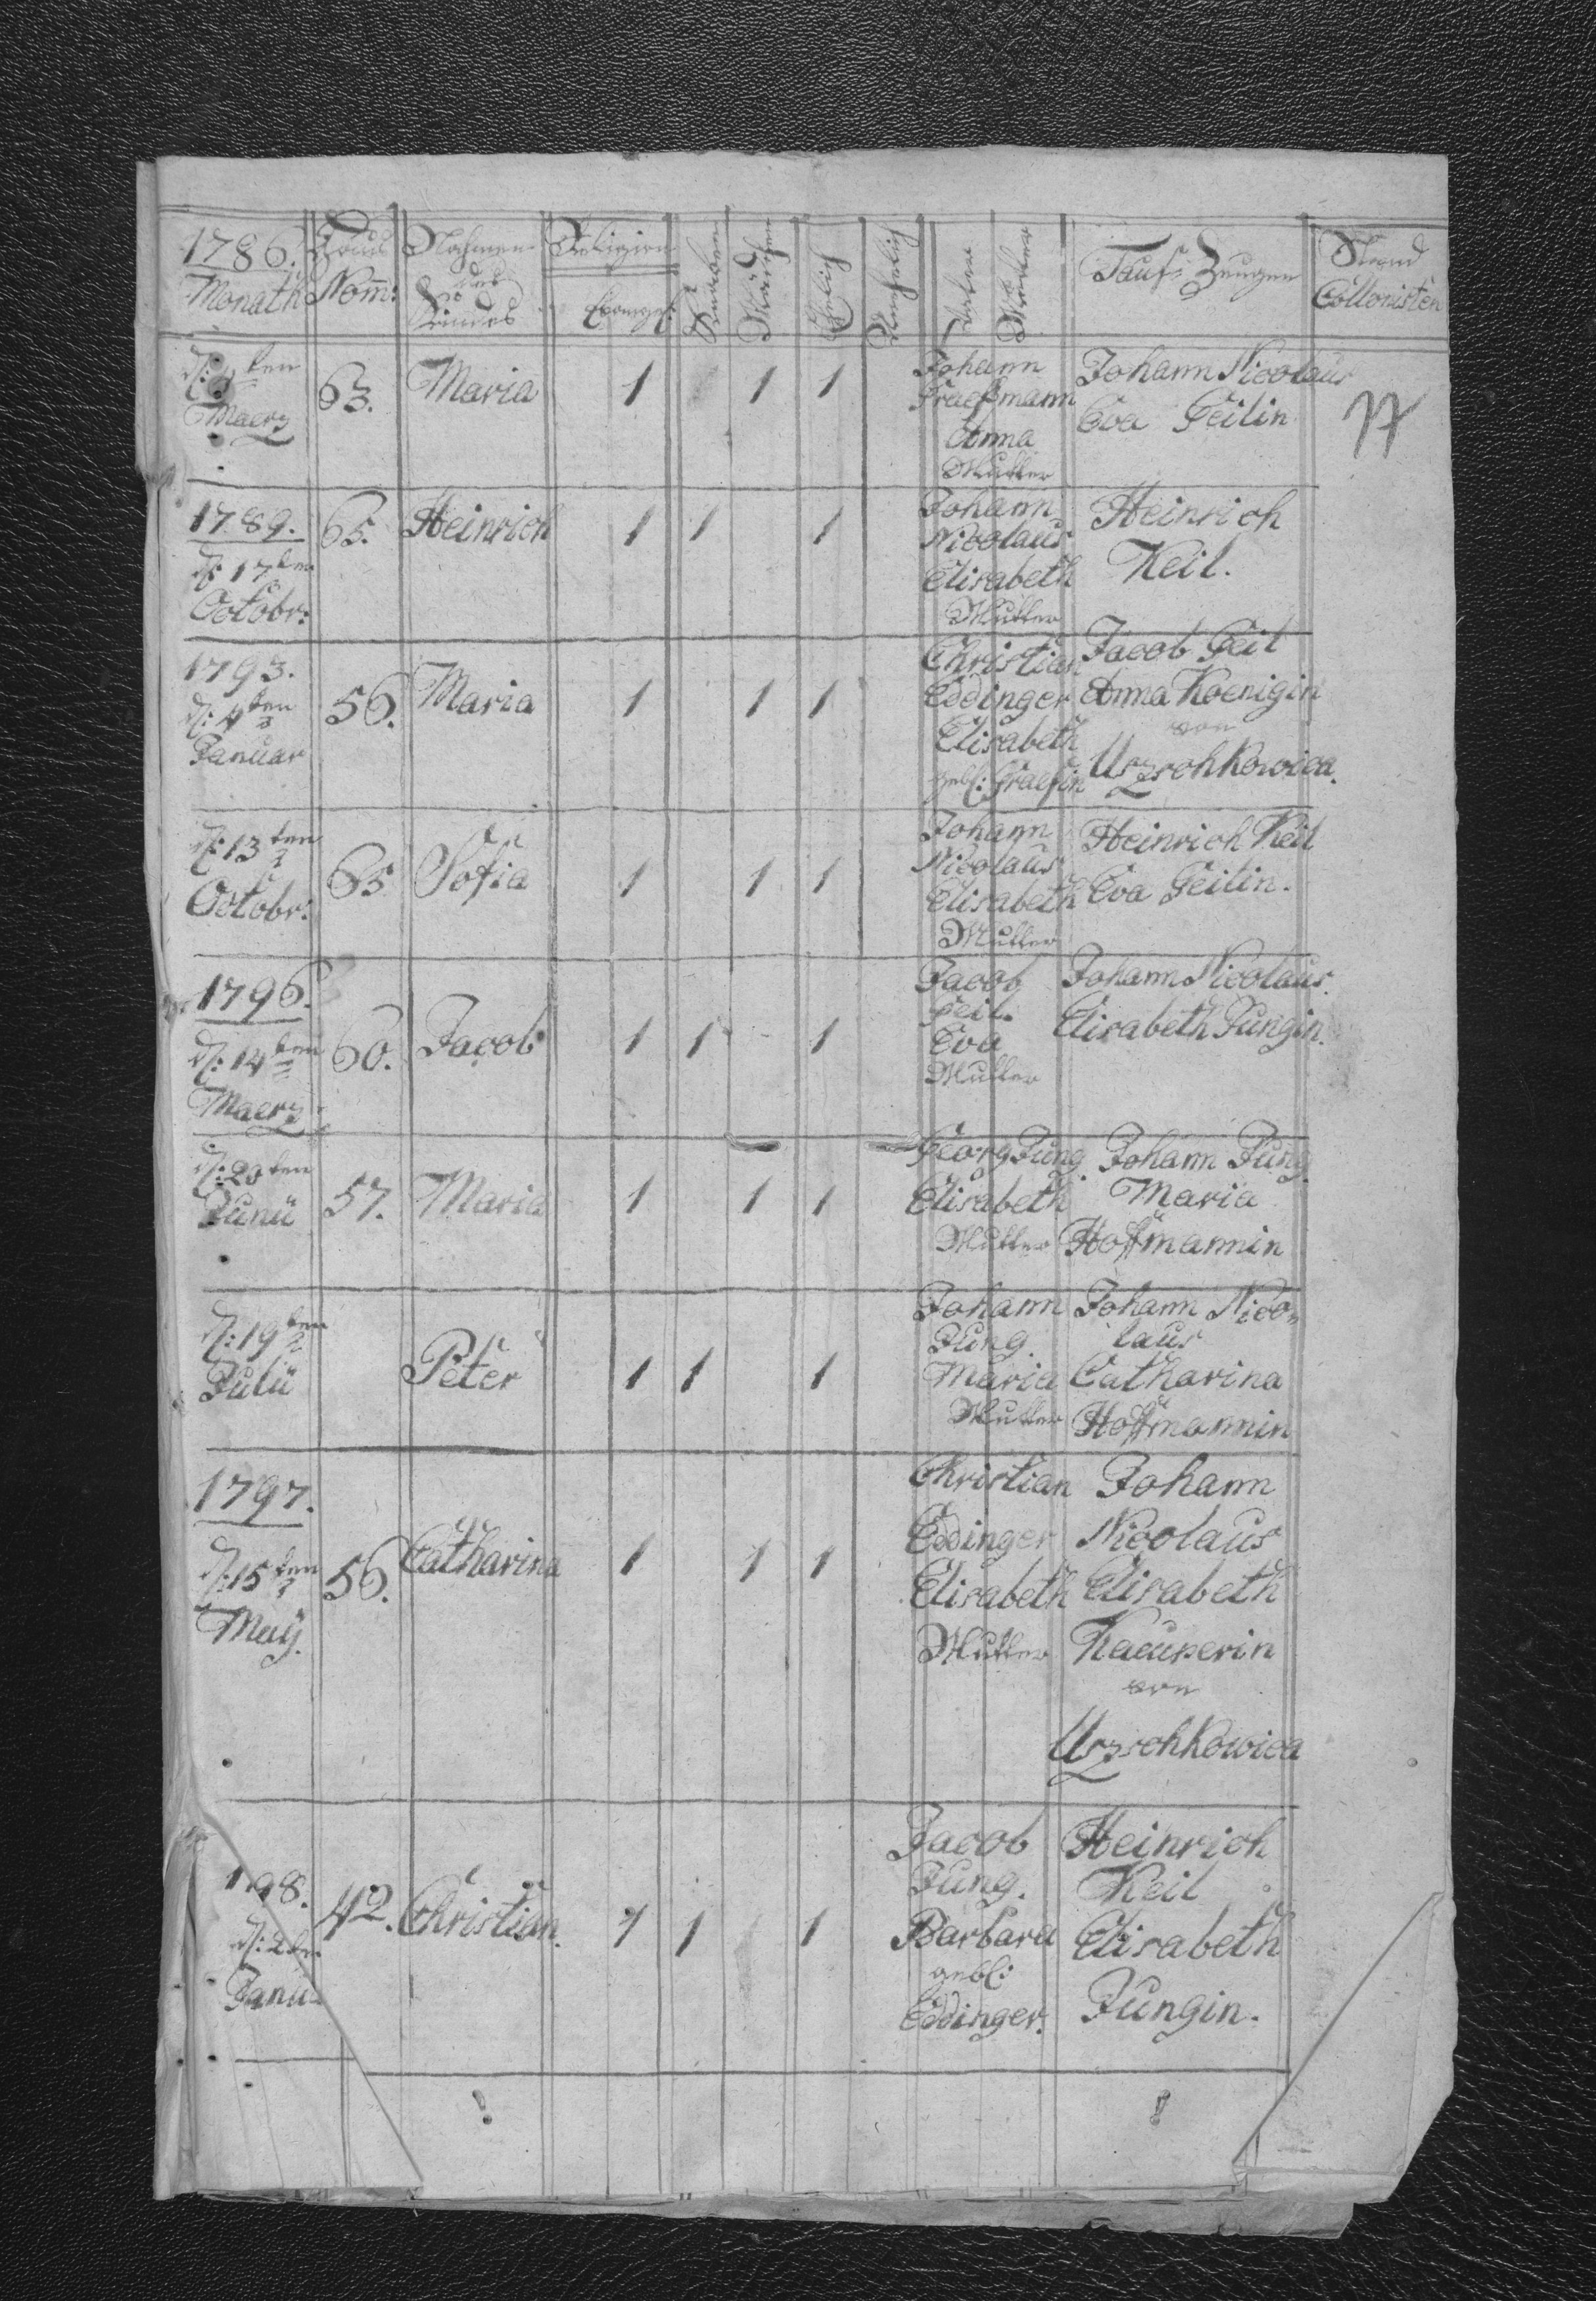 1786. Haus Nahmen Religion Knaben Mädchen Ehelich Unehelich Vater Mutter Tauf-Zeugen Stand
Monath Nom: des Evangel: Collonisten
Kindes
d: 4ten 63. Maria 1 1 1 Johann Johann Nicolaus
Maerz Eva Geilin 77
Anna
Mutter
1789. 65. Heinrich 1 1 1 Johann Heinrich
d: 17ten Nicolaus Keil.
Octobr: Elisabeth
Mutter
1793. 56. Maria 1 1 1 Christian Jacob Geil
d: 4ten Eddinger Anna Koenigin
Januar Elisabeth von
gebl: Graefin Urzschkowica.
d: 13ten 65 Sofia 1 1 1 Johann Heinrich Keil
Octobr: Nicolaus Eva Geilin.
Elisabeth
Mutter
1796. 60. Jacob 1 1 1 Jacob Johann Nicolaus.
d: 14ten Geil. Elisabeth Jungin.
Maerz Eva
Mutter
d: 20ten 57. Maria 1 1 1 Georg Jung Johann Jung.
Junii Elisabeth Maria
Mutter Hoffmannin
d: 19ten Peter 1 1 1 Johann Johann Nico-
Julii Jung. laus
Maria Catharina
Mutter Hoffmannin
1797. 56. Catharina 1 1 1 Christian Johann
d: 15ten Eddinger Nicolaus
May. Elisabeth Elisabeth
Mutter Kaeuserin
von
Urzschkowica
1798. 42. Christian. 1 1 1 Jacob Heinrich
d: 2ten Jung. Keil
Janu Barbara Elisabeth
gebl: Jungin.
Eddinger.